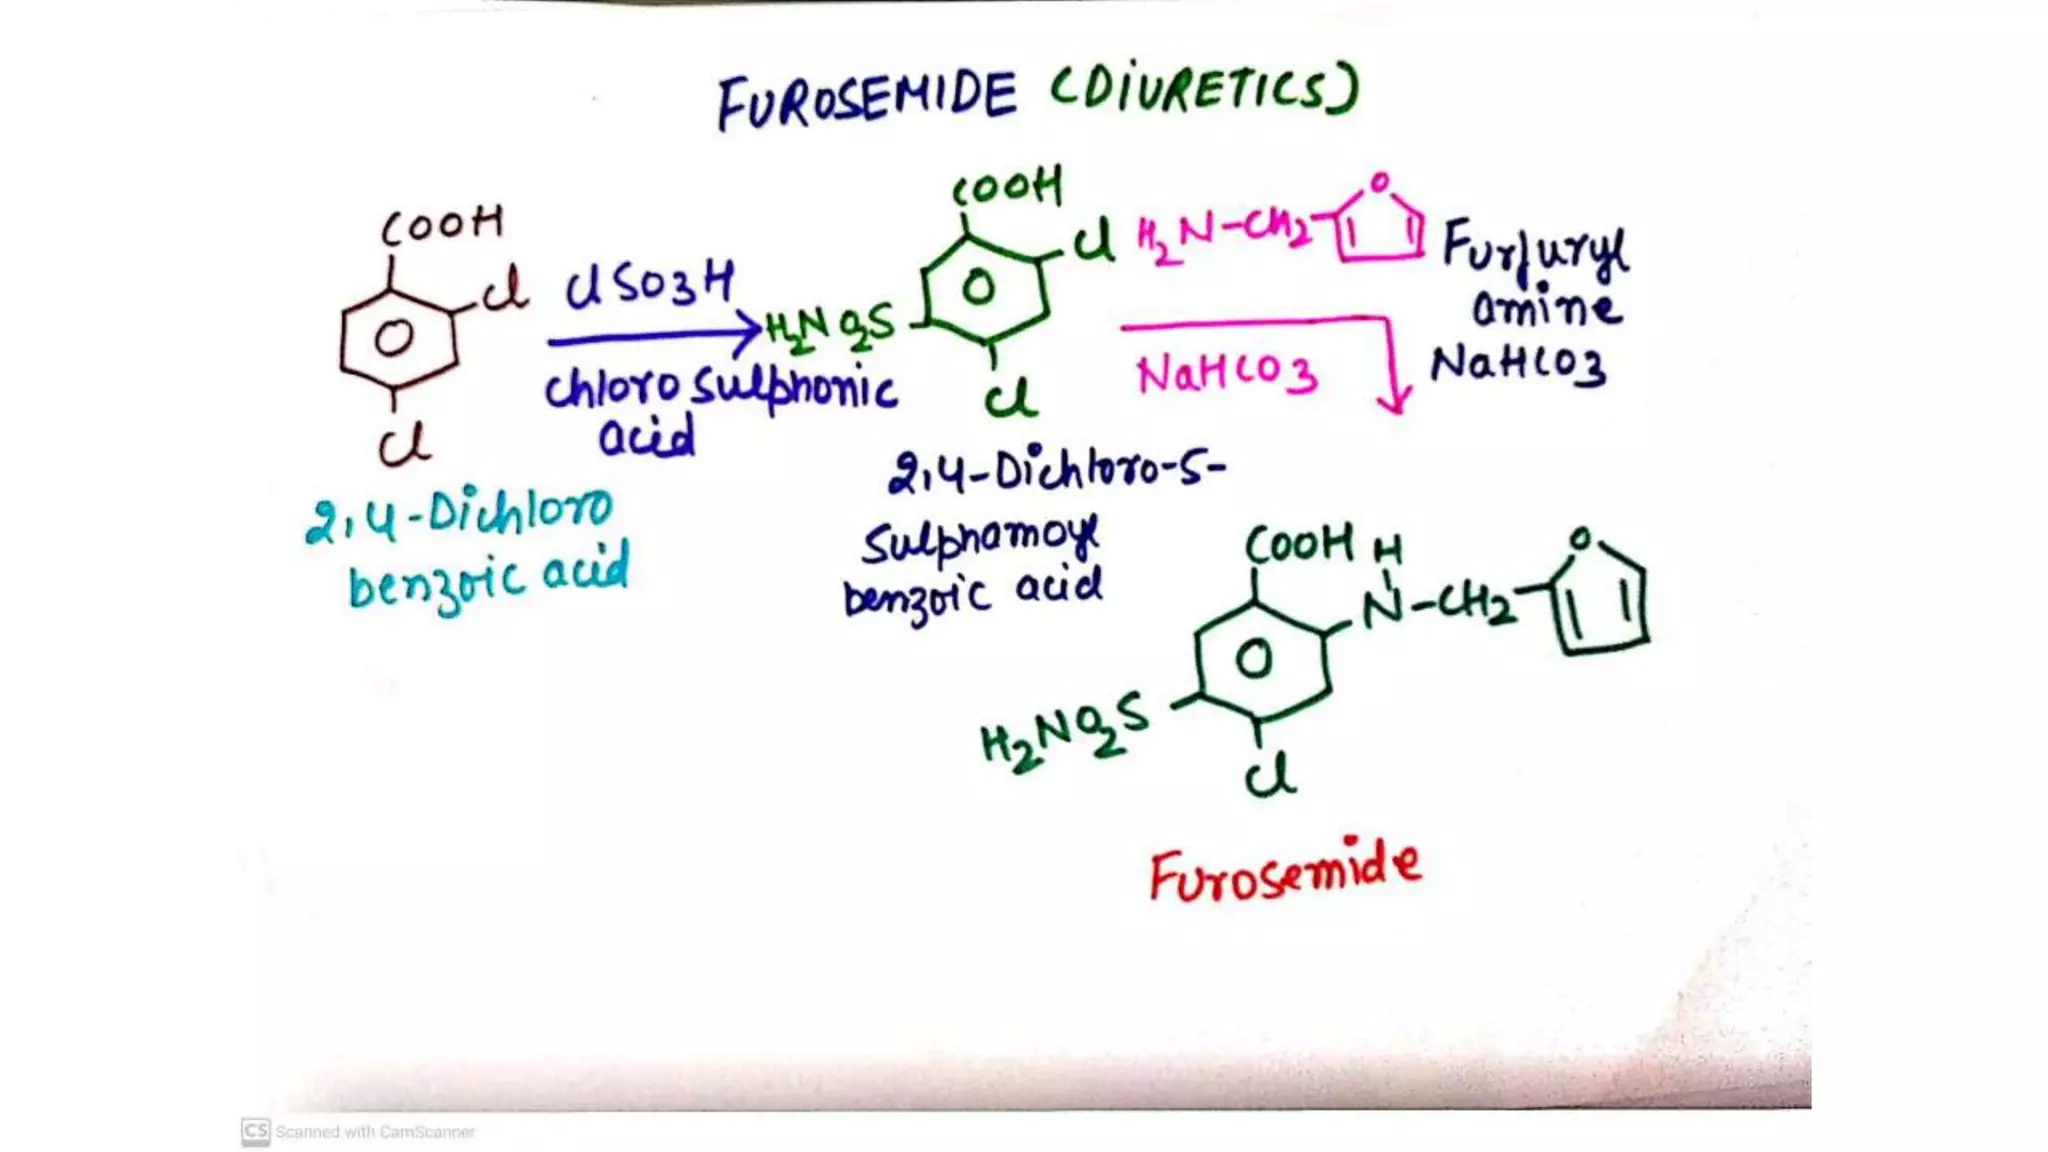 FUROSEMIDE (DIURETICS)
COOH
Cl
Cl
2,4-Dichloro
benzoic acid
ClSO3H
chloro sulphonic
acid
COOH
Cl
H2NO2S
Cl
2,4-Dichloro-5-
sulphamoyl
benzoic acid
H2N-CH2
O
NaHCO3
Furfuryl
amine
NaHCO3
COOH
H
N-CH2
O
H2NO2S
Cl
Furosemide
CS Scanned with CamScanner